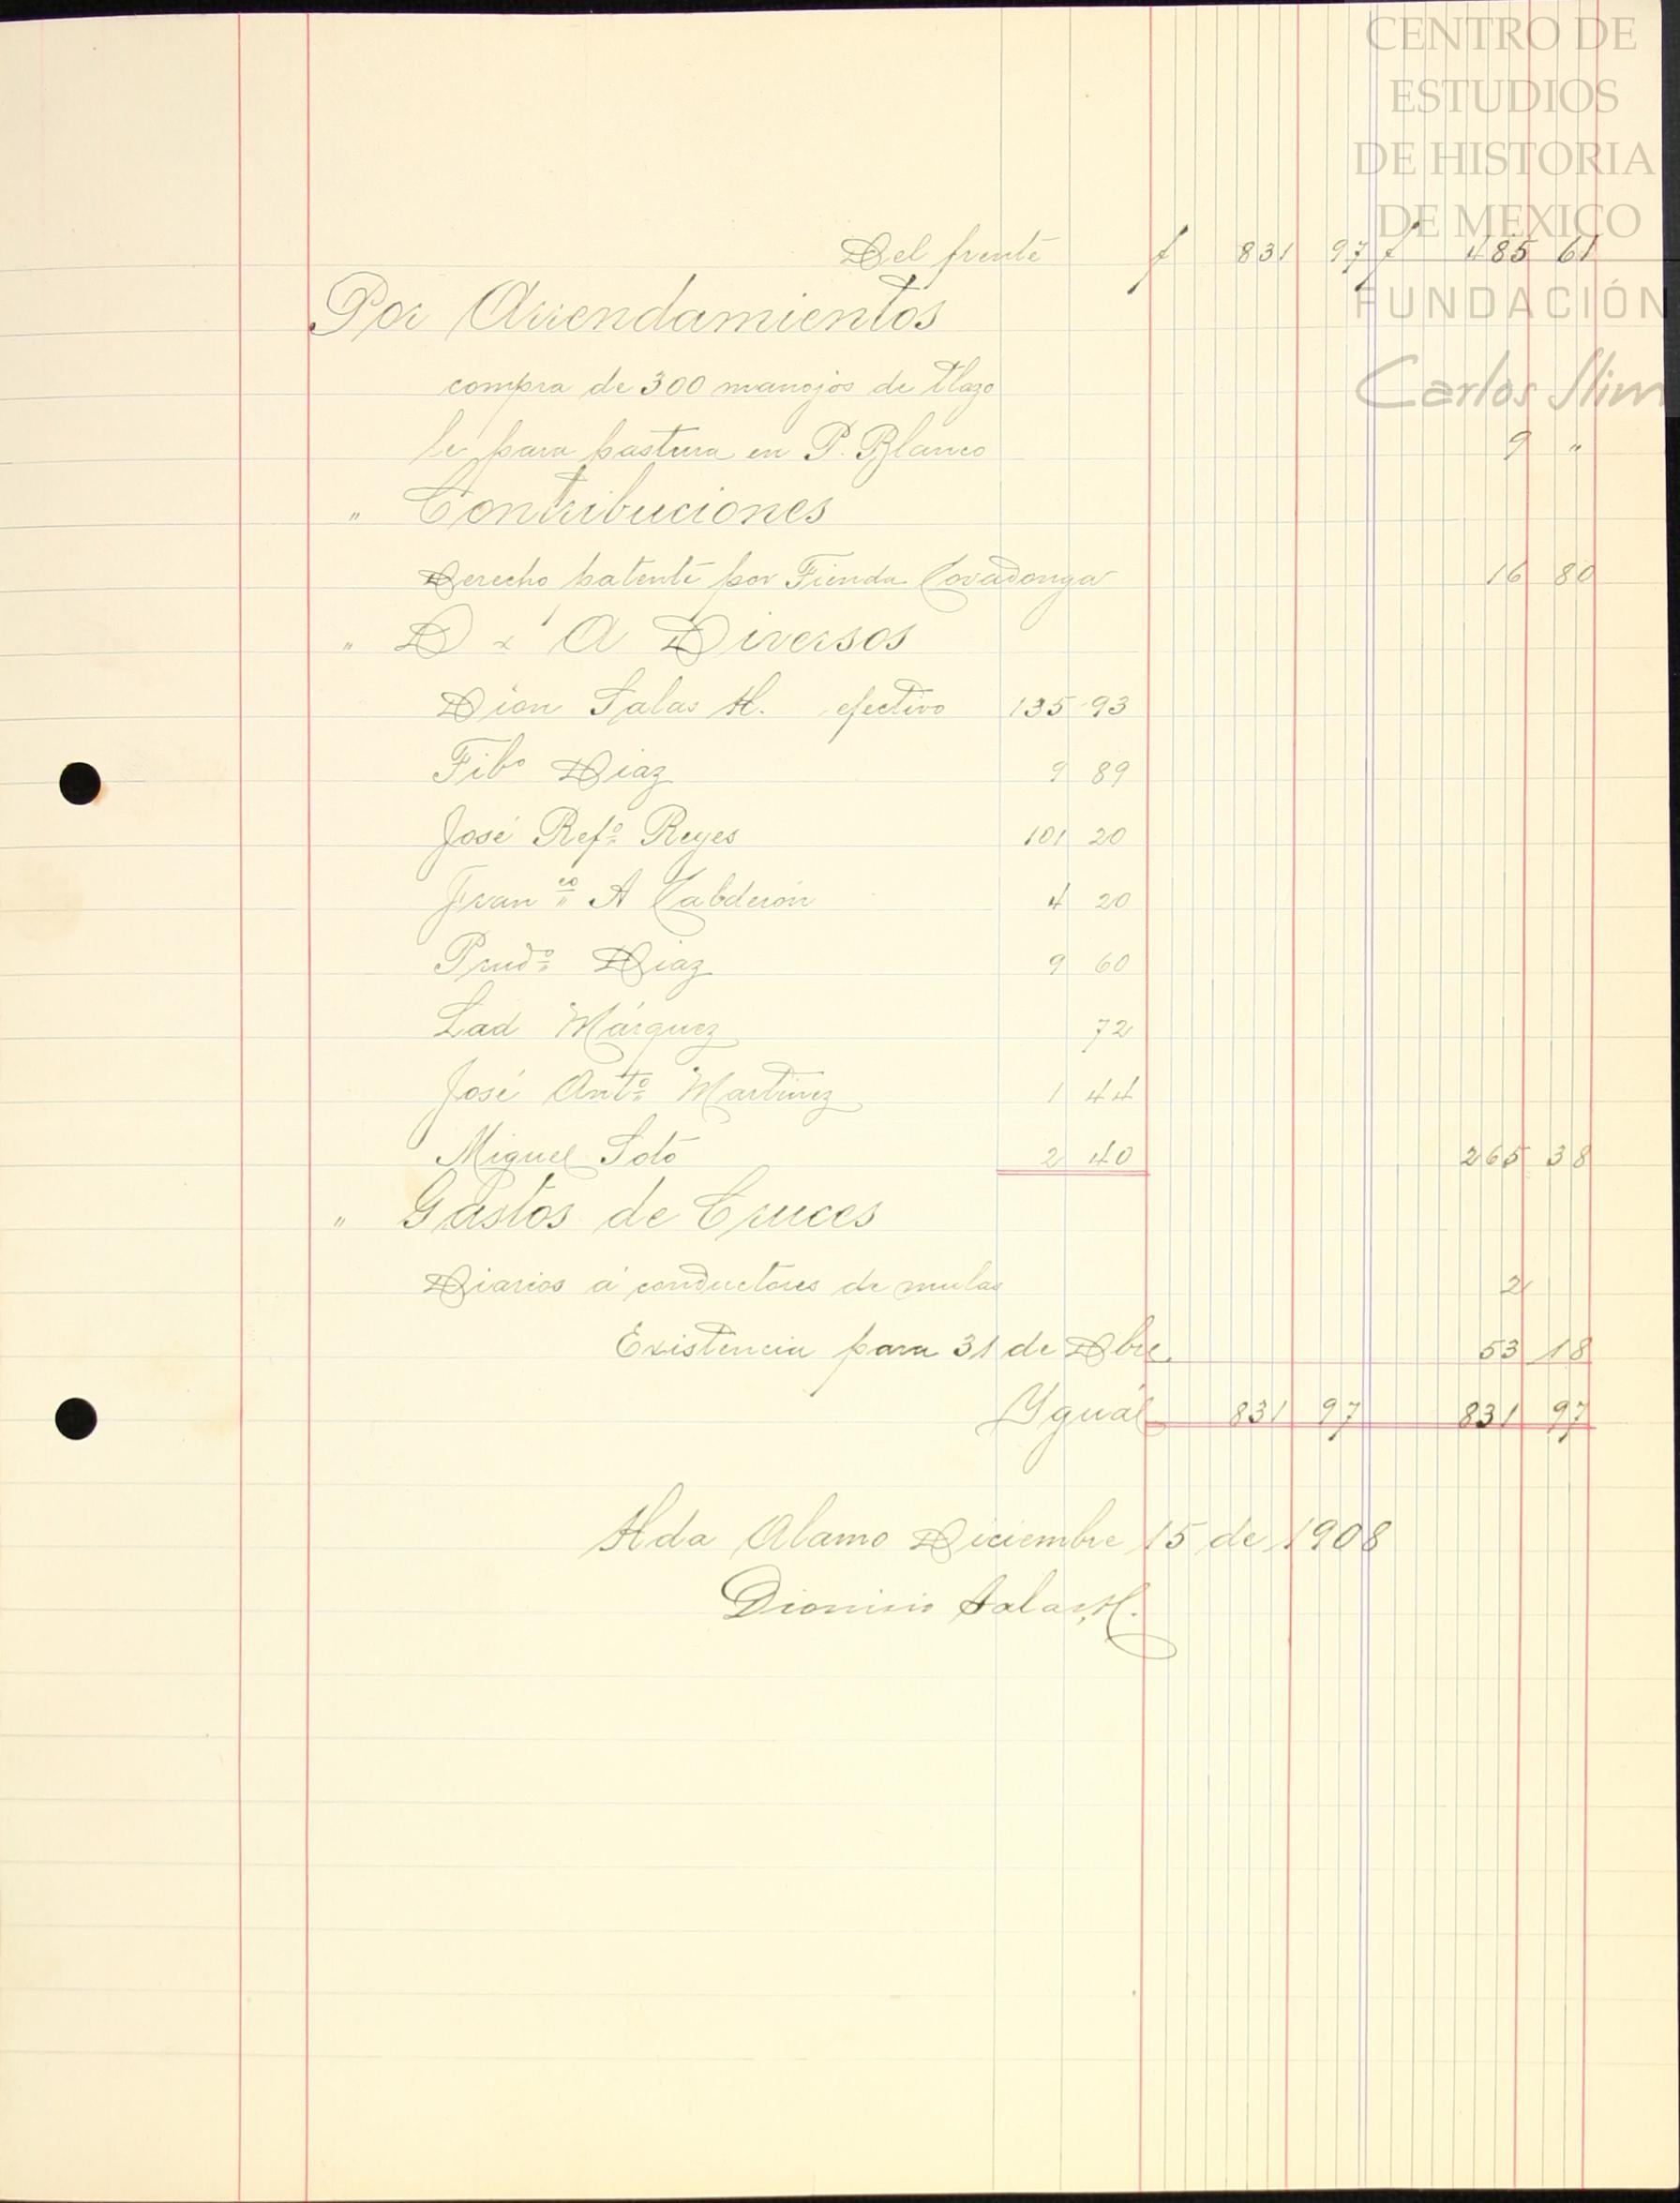 CENTRO DE
ESTUDIOS
DE HISTORIA
DE MEXICO
FUNDACIÓN
Carlos Slim
Del frente $ 831 97 $ 485 61
Por Arrendamientos
compra de 300 manojos de tlazo
le para pastura en P. Blanco 9 "
" Contribuciones
Derecho patente por Tienda Covadonga 16 80
" D x A Diversos
Dion Salas H. efectivo 135 93
Tibo Diaz 9 89
José Refo Reyes 101 20
Franco A Calderón 4 20
Prudo Diaz 9 60
Lad Márquez 72
José Anto Martinez 1 44
Miguel Soto 2 40 265 38
" Gastos de Cruces
Diarios á conductores de mulas 2
Existencia para 31 de Dbre. 53 18
Ygual 831 97 831 97
Hda Alamo Diciembre 15 de 1908
Dionicio Salas H.